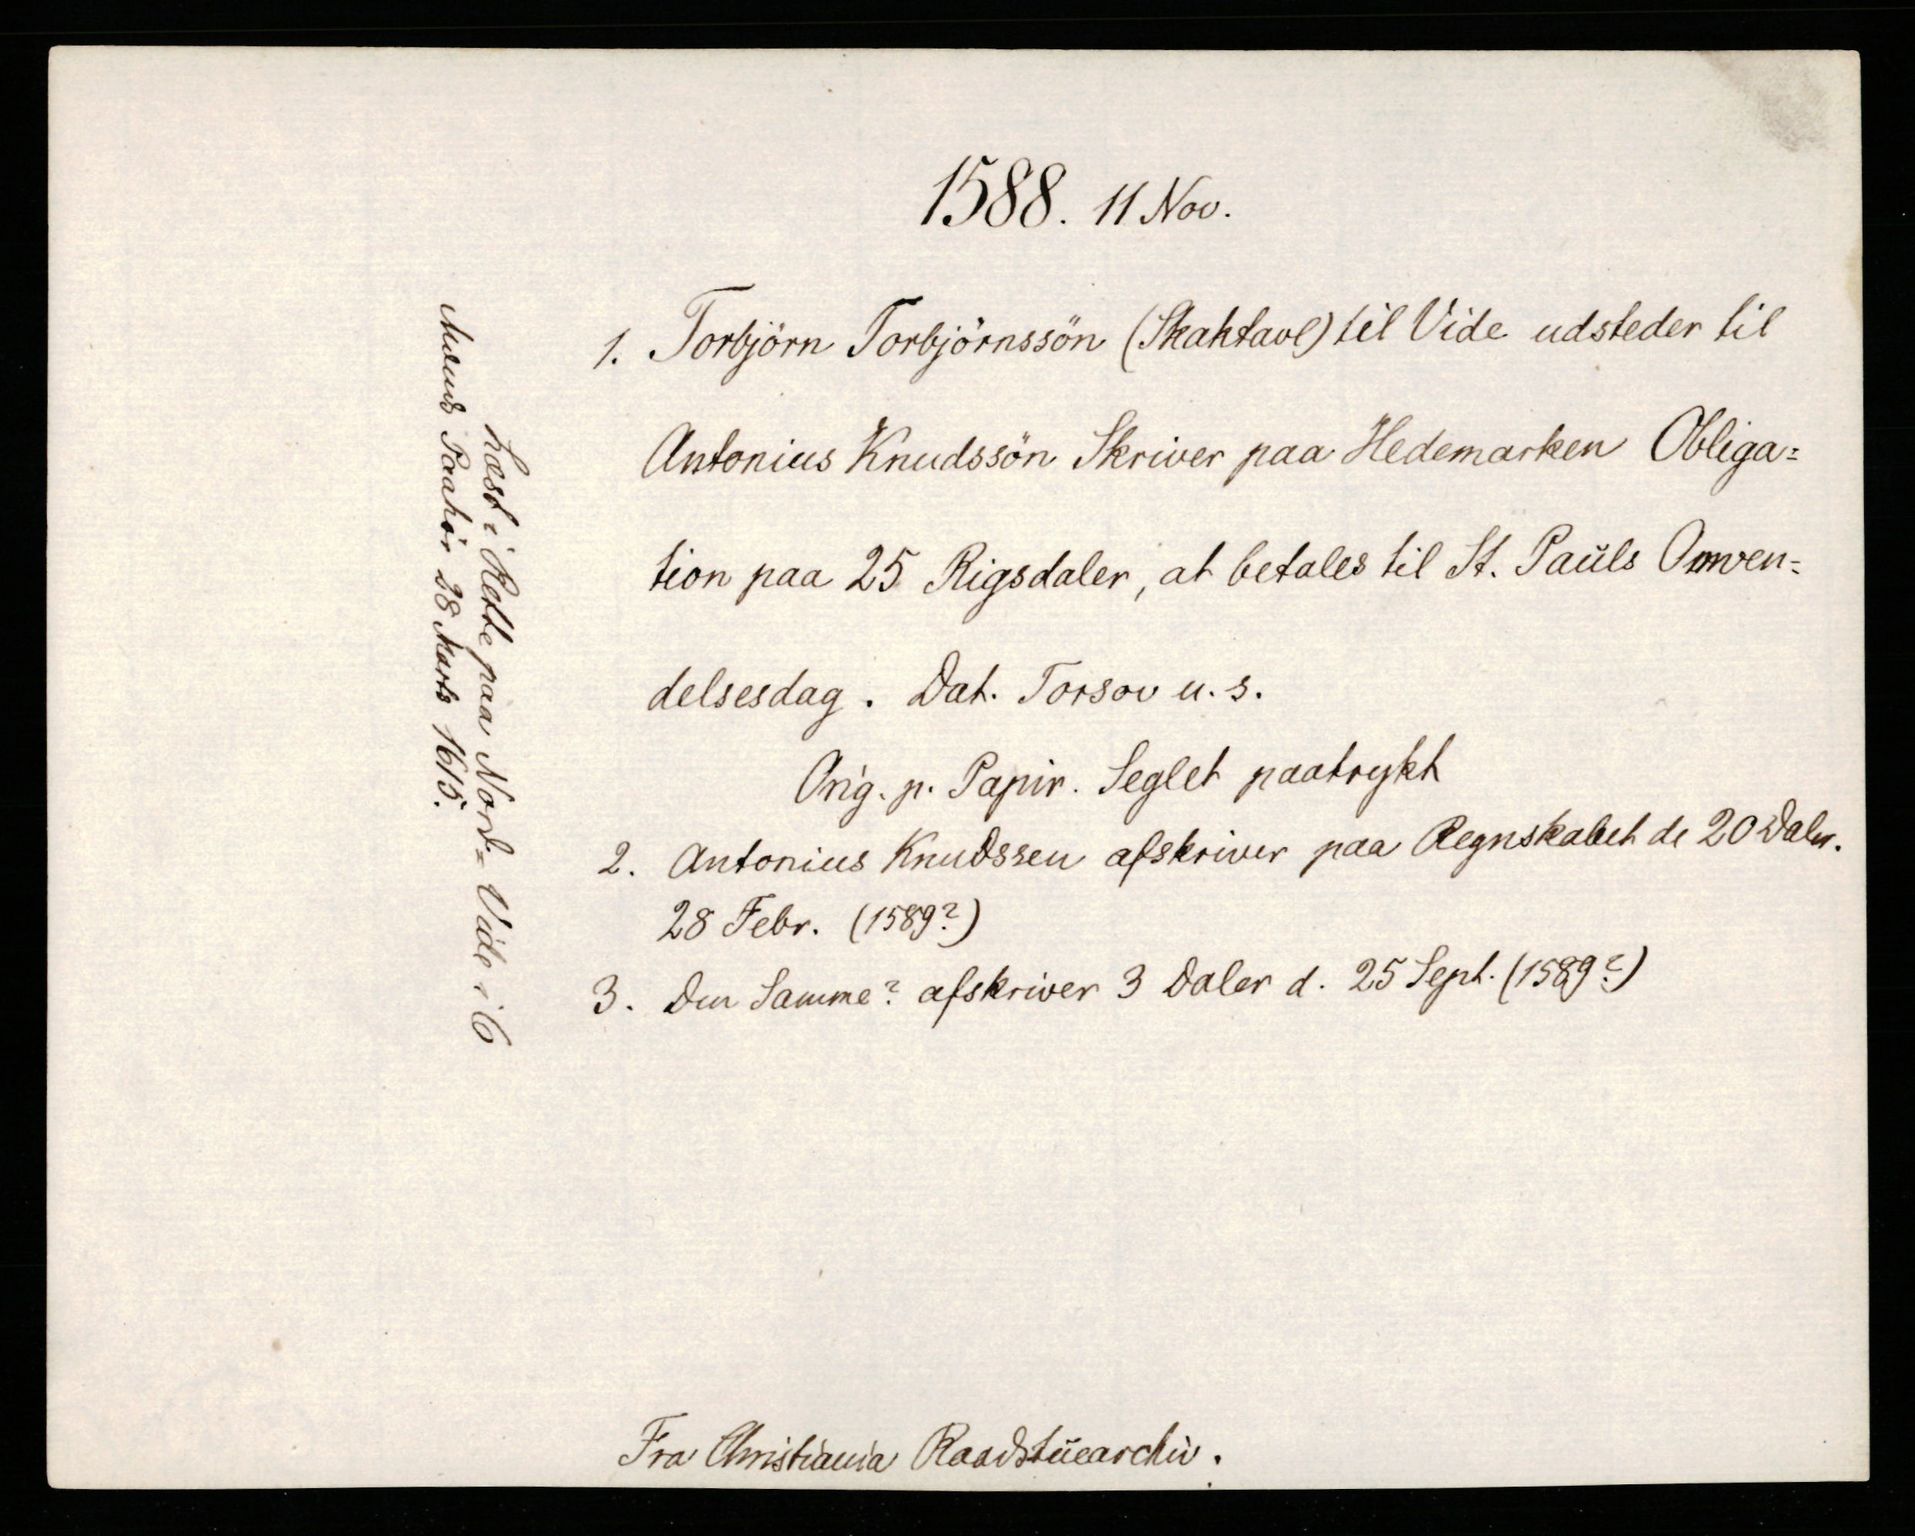 1588. 11 Nov.
1. Torbjörn Torbjörnssön (Skaktavl) til Vide udsteder til
Antonius Knudssön Skriver paa Hedemarken Obliga=
tion paa 25 Rigsdaler, at betales til St. Paŭls Omven=
delsesdag. Dat. Torsov u. s.
Orig. p. Papir. Seglet paatrykt
2. Antonius Knudssen afskriver paa Regnskabet de 20 Daler.
28 Febr. (1589?)
3. Den Samme? afskriver 3 Daler d. 25 Sept. (1589?)
Læst i Rette paa Nord=Vide i 6
Mænds Paahör 28 Marts 1615.
Fra Christiania Raadstŭearchiv.